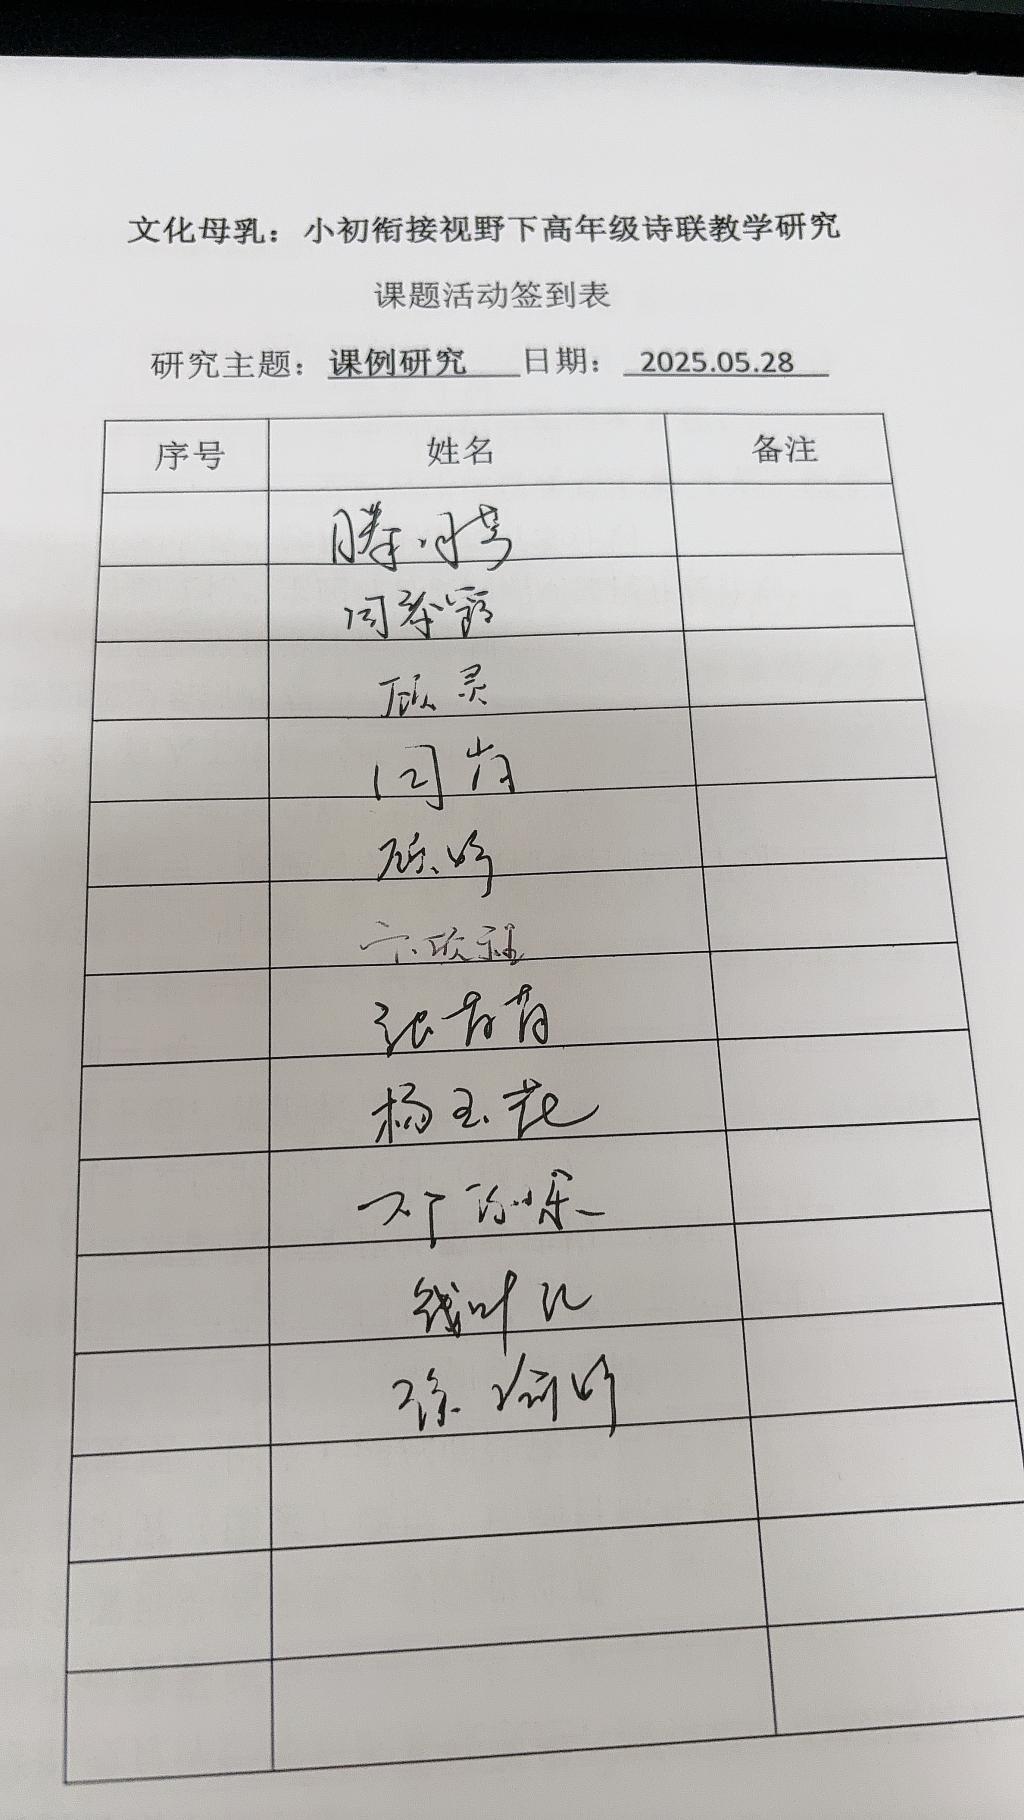 文化母乳：小初衔接视野下高年级诗联教学研究
课题活动签到表
研究主题：课例研究 日期： 2025.05.28
序号 姓名 备注
滕
闫
顾灵
闫肖
顾妍
卞欣
张青青
杨玉花
钱叶
孙瑜妍